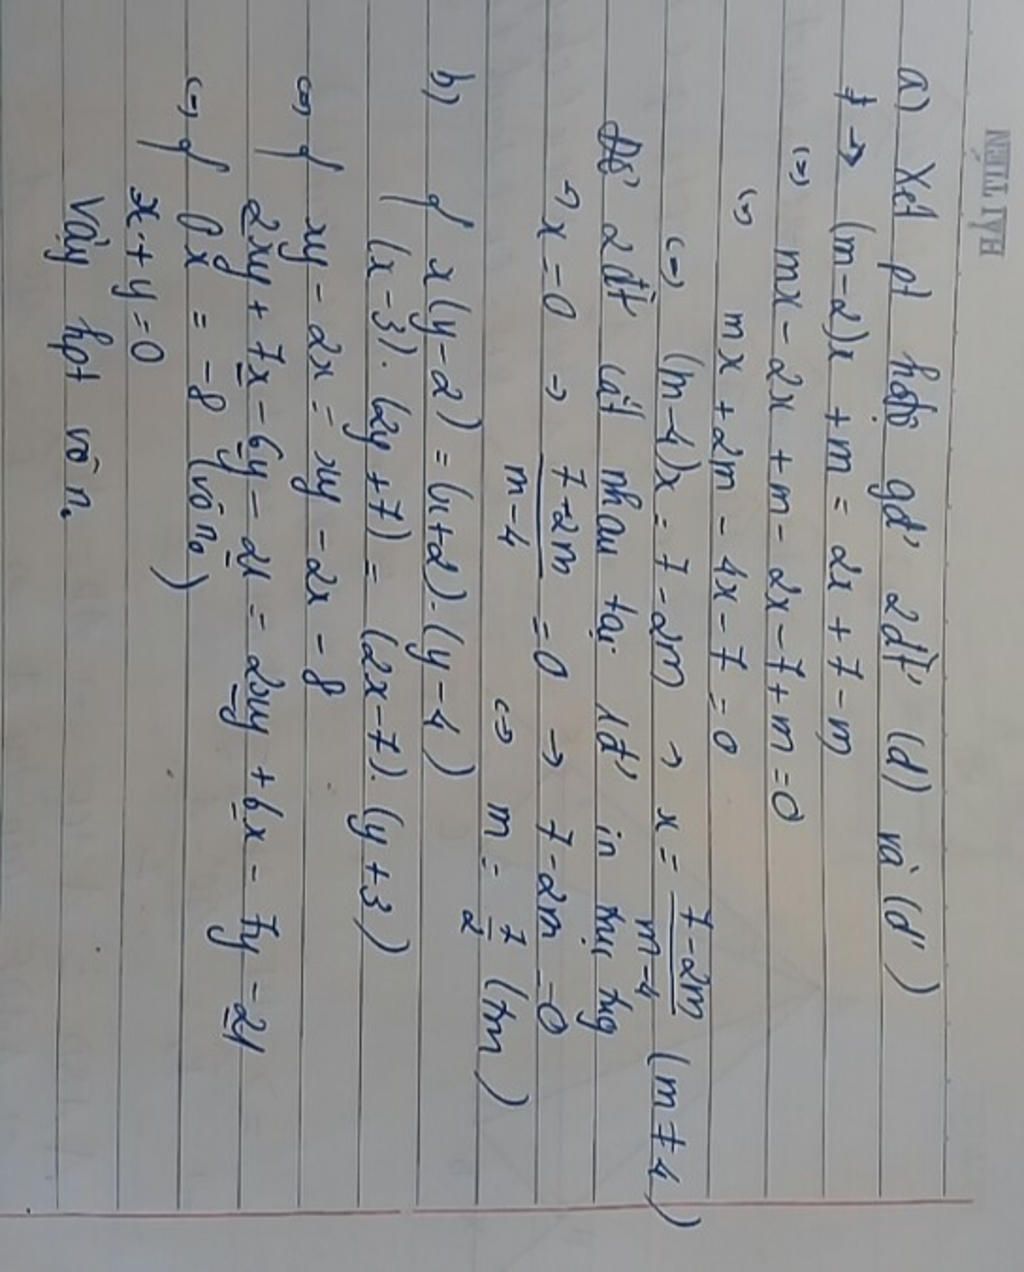 HẢI TIẾN
a) Xét pt hđộ gđ' 2đt' (d) và (d')
→ (m-2)x + m = 2x + 7 - m
(=) mx - 2x + m - 2x - 7 + m = 0
(=) mx + 2m - 4x - 7 = 0
(=) (m-4)x = 7 - 2m → x = \frac{7-2m}{m-4} (m ≠ 4)
Để 2đt' cắt nhau tại 1đ' in trục tug
→ x = 0 → \frac{7-2m}{m-4} = 0 → 7 - 2m = 0
(=) m = \frac{7}{2} (tm)
b) { x(y-2) = (x+2).(y-4)
(x-3). (2y+7) = (2x-7).(y+3)
(=) { xy - 2x = xy - 2x - 8
2xy + 7x - 6y - 21 = 2xy + 6x - 7y - 21
(=) { 0x = -8 (vô no)
x + y = 0
Vậy hpt vô n.